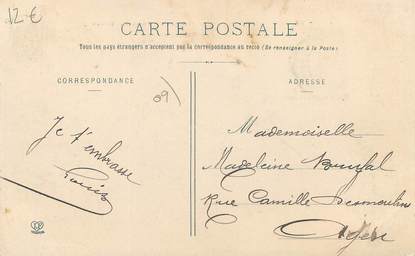 12 €
CARTE POSTALE
Tous les pays étrangers n'acceptent pas la correspondance au recto (Se renseigner à la Poste)
CORRESPONDANCE
ADRESSE
09)
Je t'embrasse
Louis
Mademoiselle
Madeleine
Rue Camille Desmoulins
Agen